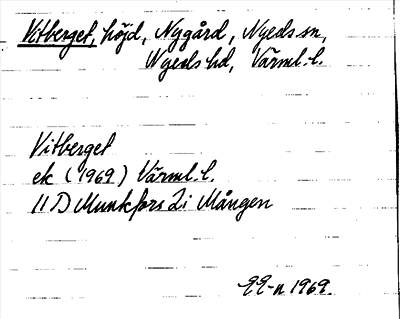 Vitberget, höjd, Nygård, Nyeds sn,
Nyeds hd, Värml. l.
Vitberget
ek (1969) Värml. l.
11 D Munkfors 2 i Mången
1969.